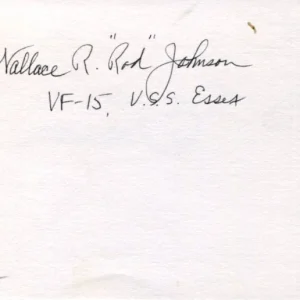 Wallace R. "Rod" Johnson
VF-15, U.S.S. Essex